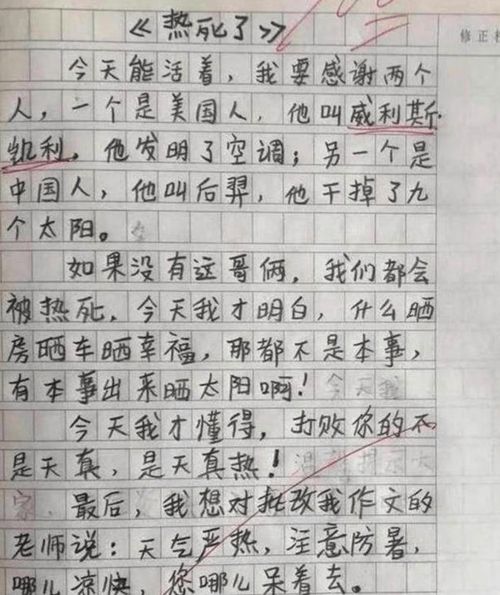 《热死了》
修正栏
今天能活着，我要感谢两个
人，一个是美国人，他叫威利斯
凯利，他发明了空调；另一个是
中国人，他叫后羿，他干掉了九
个太阳。
如果没有这哥俩，我们都会
被热死，今天我才明白，什么晒
房晒车晒幸福，那都不是本事，
有本事出来晒太阳啊！今天我
今天我才懂得，打败你的不
是天真，是天真热！温
家，最后，我想对批改我作文的
老师说：天气严热，注意防暑，
哪儿凉快，您哪儿呆着去。